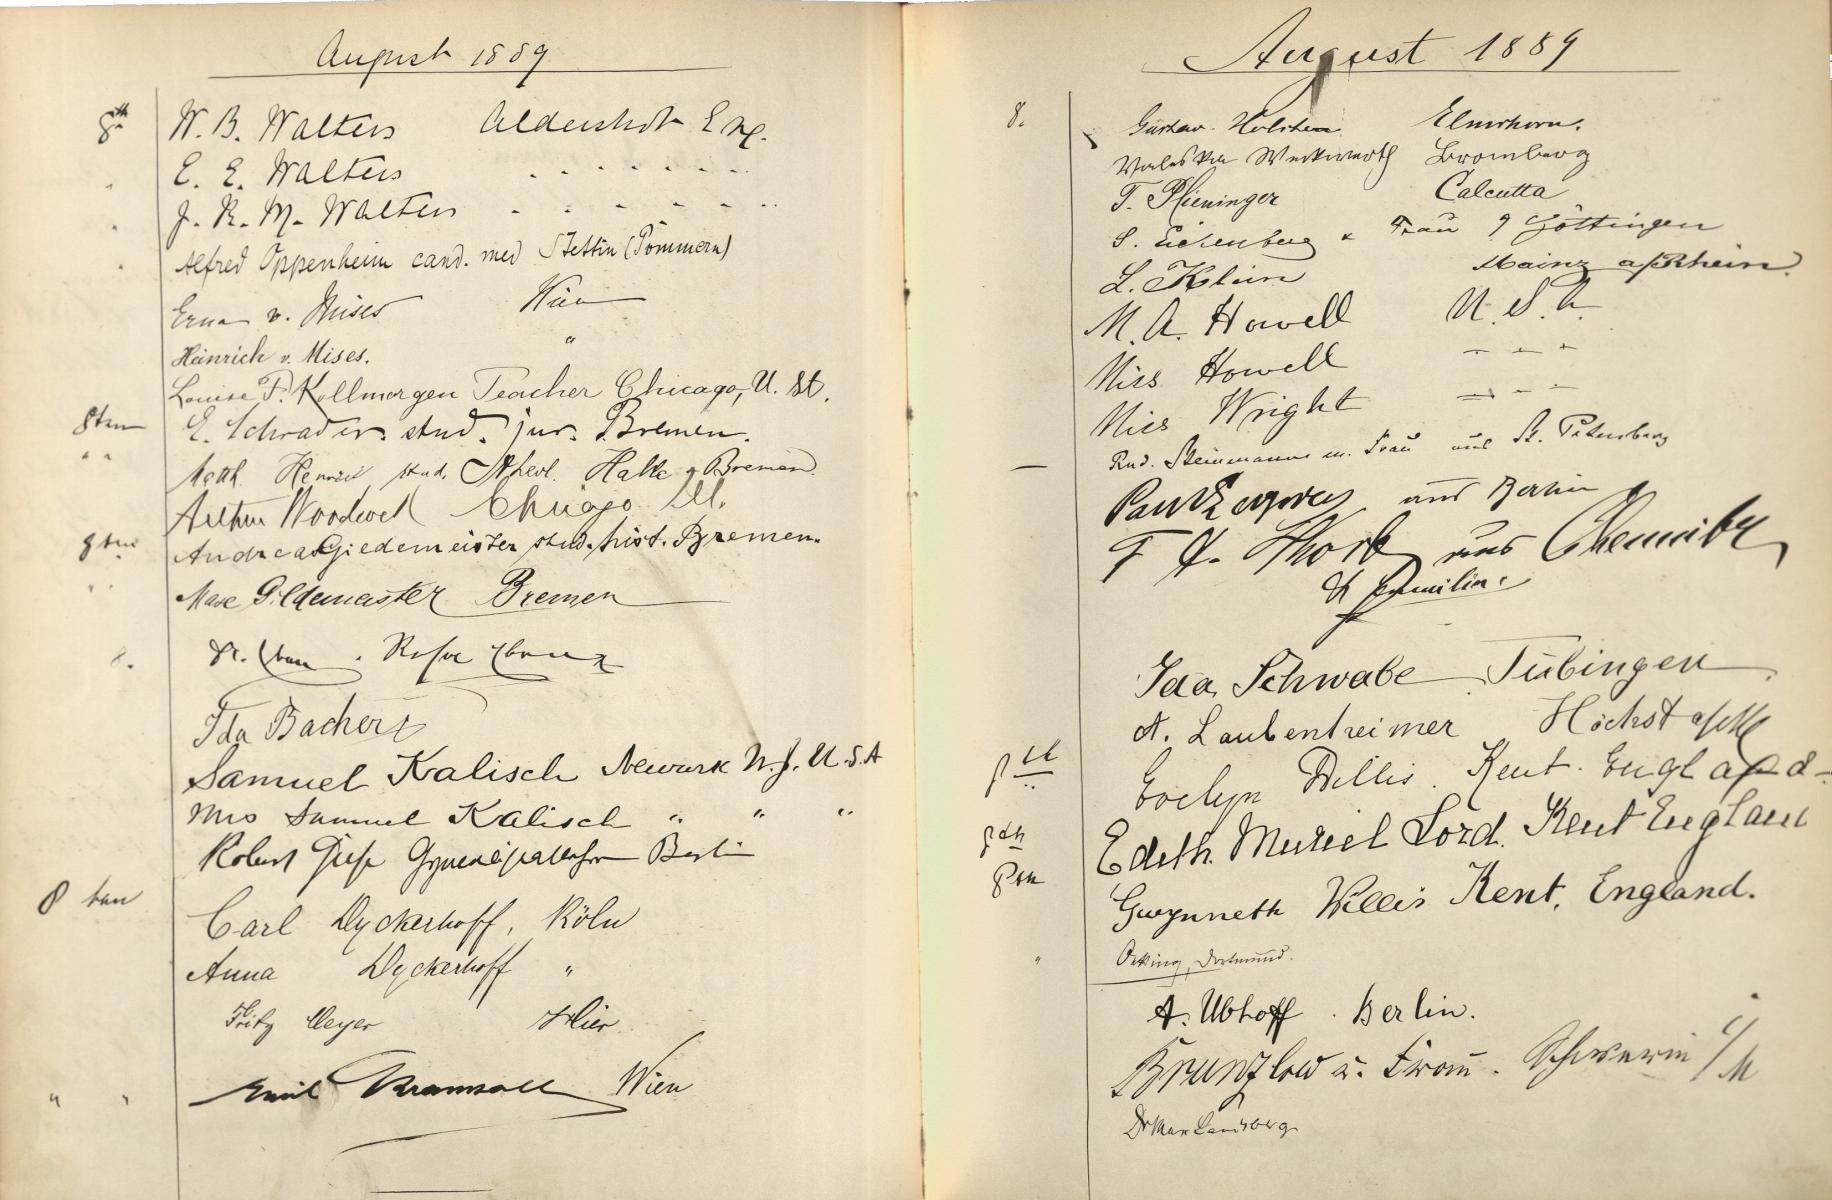 August 1889
8th W. B. Walters Aldershot Eng.
E. E. Walters
J. R. M. Walters
Alfred Oppenheim cand. med Stettin (Pommern)
Erna v. Mises Wien
Heinrich v. Mises. "
Louise F. Kollmorgen Teacher Chicago, U. St.
8ten E. Schrader. stud. jur. Bremen.
" " stud. Halle Bremen.
Arthur Chicago Ill.
8ten Andreas Gildemeister stud. hist. Bremen.
" Max Gildemeister Bremen
8.
Ida Bachert
Samuel Kalisch Newark N. J. U. S. A
Mrs Samuel Kalisch " " "
Robert Berlin
8ten Carl Dyckerhoff, Köln
Anna Dyckerhoff "
Fritz Meyer Hier
" " Emil Wien
August 1889
8. Gustav Holstein Elmshorn.
Valeska Bromberg
T. Plieninger Calcutta
S. Eichenberg & Frau Göttingen
L. Klein Mainz a/Rhein.
M. A. Howell U. S. A.
Miss Howell
Miss Wright
Rud. Steinmann m. Frau aus St. Petersburg
Paul aus Berlin
F. A. aus Chemnitz
& Familie.
Ida Schwabe Tübingen
A. Laubenheimer Höchst a/M
8th Evelyn Willis. Kent. England
8th Edith Muriel Lord. Kent England
8th Gwynneth Willis Kent. England.
" Oeking, Dortmund.
A. Ubhoff. Berlin.
Brunzlow u. Frau. Schwerin i/M
Dr Max Landsberg